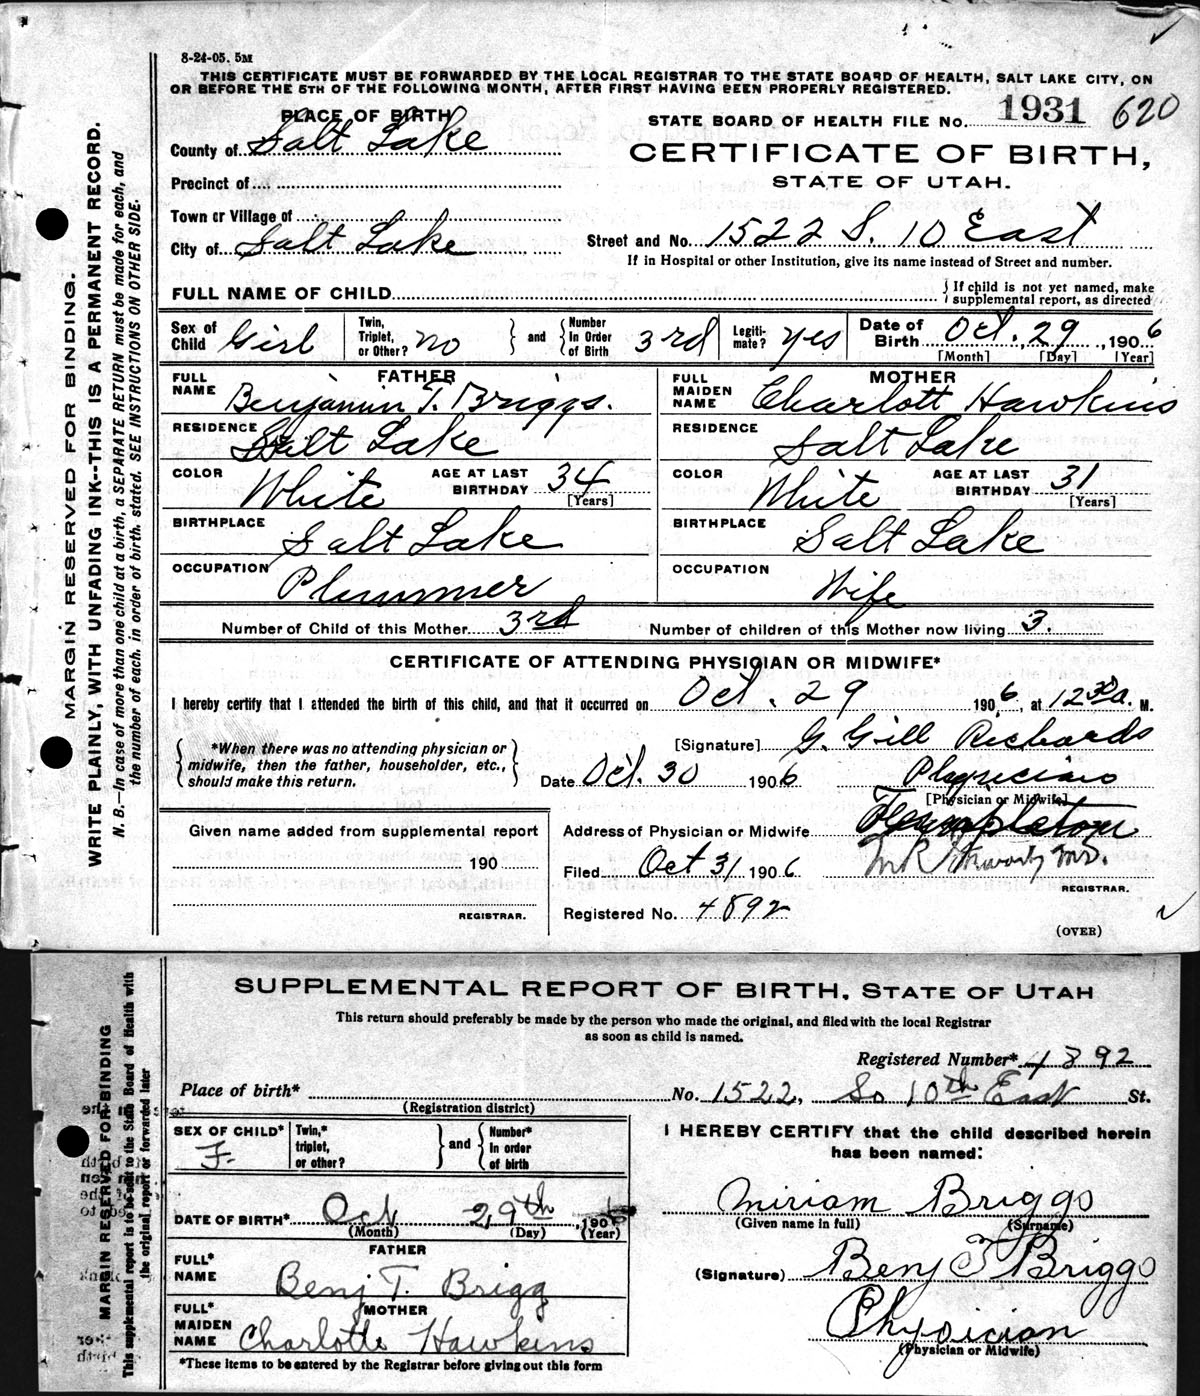 8-24-05. 5M
THIS CERTIFICATE MUST BE FORWARDED BY THE LOCAL REGISTRAR TO THE STATE BOARD OF HEALTH, SALT LAKE CITY, ON
OR BEFORE THE 5TH OF THE FOLLOWING MONTH, AFTER FIRST HAVING BEEN PROPERLY REGISTERED.
PLACE OF BIRTH
STATE BOARD OF HEALTH FILE No. 1931 620
County of Salt Lake
CERTIFICATE OF BIRTH,
STATE OF UTAH.
Precinct of
Town or Village of
City of Salt Lake
Street and No. 1522 S. 10 East
If in Hospital or other Institution, give its name instead of Street and number.
FULL NAME OF CHILD
If child is not yet named, make
supplemental report, as directed
Sex of Child Girl Twin, Triplet, or Other? no and Number In Order of Birth 3rd Legitimate? yes Date of Birth Oct. 29, 1906
[Month] [Day] [Year]
FATHER
FULL NAME Benjamin T. Briggs.
RESIDENCE Salt Lake
COLOR White AGE AT LAST BIRTHDAY 34
[Years]
BIRTHPLACE Salt Lake
OCCUPATION Plummer
MOTHER
FULL MAIDEN NAME Charlott Hawkins
RESIDENCE Salt Lake
COLOR White AGE AT LAST BIRTHDAY 31
[Years]
BIRTHPLACE Salt Lake
OCCUPATION Wife
Number of Child of this Mother 3rd Number of children of this Mother now living 3.
CERTIFICATE OF ATTENDING PHYSICIAN OR MIDWIFE*
I hereby certify that I attended the birth of this child, and that it occurred on Oct. 29 1906, at 12 30 a. M.
*When there was no attending physician or
midwife, then the father, householder, etc.,
should make this return.
[Signature] G. Gill Richards
Date Oct. 30 1906 Physician
[Physician or Midwife]
Given name added from supplemental report
190
REGISTRAR.
Address of Physician or Midwife Templeton
Filed Oct 31 1906
REGISTRAR.
Registered No. 4892
(OVER)
MARGIN RESERVED FOR BINDING.
WRITE PLAINLY, WITH UNFADING INK--THIS IS A PERMANENT RECORD.
N. B.—In case of more than one child at birth, a SEPARATE RETURN must be made for each, and
the number of each, in order of birth, stated. SEE INSTRUCTIONS ON OTHER SIDE.
SUPPLEMENTAL REPORT OF BIRTH, STATE OF UTAH
This return should preferably be made by the person who made the original, and filed with the local Registrar
as soon as child is named.
Registered Number* 4892
Place of birth* No. 1522, So 10th East St.
(Registration district)
SEX OF CHILD* F. Twin,* triplet, or other? and Number* In order of birth
DATE OF BIRTH* Oct 29th, 1906
(Month) (Day) (Year)
FATHER
FULL* NAME Benj T. Brigg
MOTHER
FULL* MAIDEN NAME Charlotte Hawkins
*These items to be entered by the Registrar before giving out this form
I HEREBY CERTIFY that the child described herein
has been named:
Miriam Briggs
(Given name in full) (Surname)
(Signature) Benj T Briggs
Physician
(Physician or Midwife)
MARGIN RESERVED FOR BINDING
This supplemental report is to be sent to the State Board of Health with
the original report or forwarded later